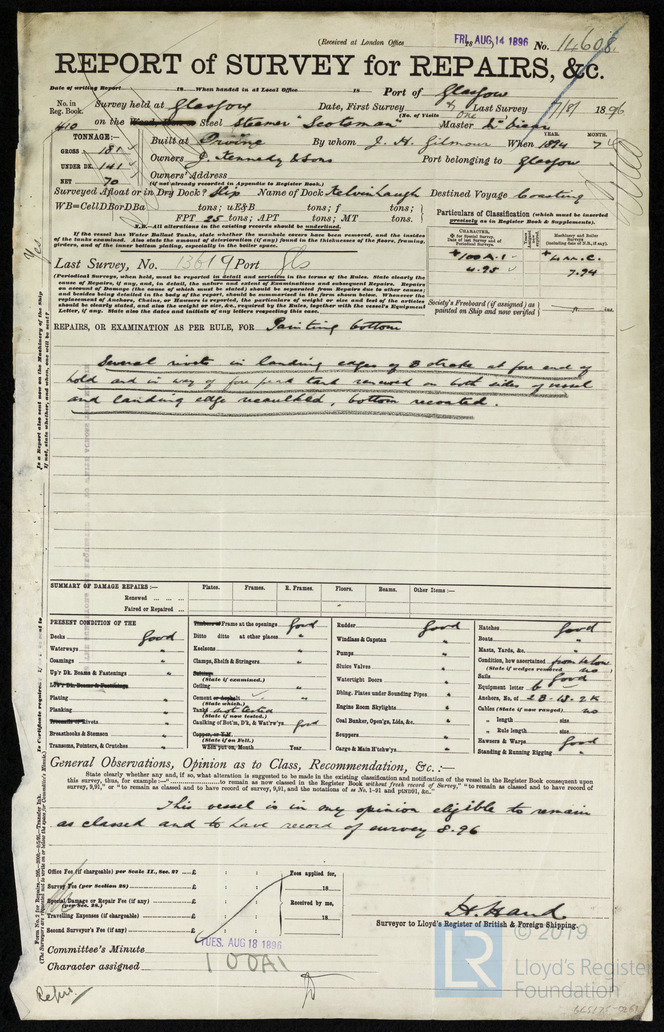 (Received at London Office FRI. AUG. 14 1896 18 ) No. 14608.
REPORT of SURVEY for REPAIRS, &c.
Date of writing Report 18 When handed in at Local Office 18 Port of Glasgow
No. in Reg. Book. Survey held at Glasgow Date, First Survey & Last Survey 7/8/ 1896
(No. of Visits One )
410 on the Steel Steamer "Scotsman" Master
TONNAGE:— Built at Irvine By whom J. H. Gilmour When 1894 7
YEAR. MONTH.
GROSS 181 Owners J. Kennedy & Sons Port belonging to Glasgow
UNDER DK. 141 Owners' Address
NET 70 (if not already recorded in Appendix to Register Book.)
Surveyed Afloat or in Dry Dock? Slip Name of Dock Kelvinhaugh Destined Voyage Coasting
WB=CellDBorDBa tons; uE&B tons; f tons;
FPT 25 tons; APT tons; MT tons.
N.B.—All alterations in the existing records should be underlined.
Particulars of Classification (which must be inserted precisely as in Register Book & Supplements).
If the vessel has Water Ballast Tanks, state whether the manhole covers have been removed, and the insides
of the tanks examined. Also state the amount of deterioration (if any) found in the thicknesses of the floors, framing,
girders, and of the inner bottom plating, especially in the boiler space.
Last Survey, No. 13619 Port Gls
CHARACTER, * for Special Survey. Date of last Survey and of Periodical Surveys.
Machinery and Boiler Surveys (including date of N.B., if any).
*100A.1 *LMC.
4.95 7.94
(Periodical Surveys, when held, must be reported in detail and seriatim in the terms of the Rules. State clearly the
cause of Repairs, if any, and, in detail, the nature and extent of Examinations and subsequent Repairs. Repairs
on account of Damage (the cause of which must be stated) should be separated from Repairs due to other causes;
and besides being detailed in the body of the report, should be summarised in the form shown below. Whenever the
replacement of Anchors, Chains, or Hawsers is reported, the particulars of weight or size and test of the articles
should be clearly stated, and also the weight or size, &c., required by the Rules, together with the vessel's Equipment
Letter, if any. State also the dates and initials of any letters respecting this case.
Society's Freeboard (if assigned) as painted on Ship and now verified ft. ins.
REPAIRS, OR EXAMINATION AS PER RULE, FOR Painting bottom
Several rivets in landing edges of B strake at fore end of
hold and in way of fore peak tank renewed on both sides of vessel
and landing edge recaulked, bottom recoated.
SUMMARY OF DAMAGE REPAIRS:— Plates. Frames. R. Frames. Floors. Beams. Other Items:—
Renewed
Faired or Repaired
PRESENT CONDITION OF THE
Decks good
Waterways "
Coamings "
Up'r Dk. Beams & Fastenings "
Low'r Dk. Beams & Fastenings
Plating "
Planking "
Treenails or Rivets "
Breasthooks & Stemson "
Transoms, Pointers, & Crutches "
Timbers or Frame at the openings good
Ditto ditto at other places "
Keelsons "
Clamps, Shelfs & Stringers "
(State if examined.)
Ceiling "
Cement or Asphalt
(State which.)
Tanks not tested
(State if now tested.)
Caulking of Bot'm, D'k, & Wat'rw'ys good
Copper, or Y.M.
(State if on Felt.)
When put on, Month Year
Rudder good
Windlass & Capstan "
Pumps "
Sluice Valves "
Watertight Doors "
Dblng. Plates under Sounding Pipes "
Engine Room Skylights "
Coal Bunker, Open'gs, Lids, &c. "
Scuppers "
Cargo & Main H'tchw'ys "
Hatches good
Boats "
Masts, Yards, &c. "
Condition, how ascertained from below
(State if wedges removed) no
Sails good
Equipment letter b
Anchors, No. of 2B. 1S. 2K
Cables (State if now ranged) no
" length size
" Rule length size
Hawsers & Warps good
Standing & Running Rigging "
General Observations, Opinion as to Class, Recommendation, &c.:—
State clearly whether any, and if so, what alteration is suggested to be made in the existing classification and notification of the vessel in the Register Book consequent upon
this survey, thus, for example:—" to remain as now classed in the Register Book without fresh record of Survey," "to remain as classed and to have record of
survey, 9,91," or "to remain as classed and to have record of survey, 9,91, and the notations of ss No. 1-91 and ptND91, &c."
This vessel is in my opinion eligible to remain
as classed and to have record of survey 8.96
Office Fee (if chargeable) per Scale II., Sec. 27 £ : : Fees applied for,
Survey Fee (per Section 28) £ : : 18
Special Damage or Repair Fee (if any) (per Sec. 28.) £ : : Received by me,
Travelling Expenses (if chargeable) £ : : 18
Second Surveyor's Fee (if any) £ : :
H. Hand
Surveyor to Lloyd's Register of British & Foreign Shipping.
Committee's Minute TUES. AUG 18 1896
Character assigned 100A1
© 2019
LR Lloyd's Register
Foundation